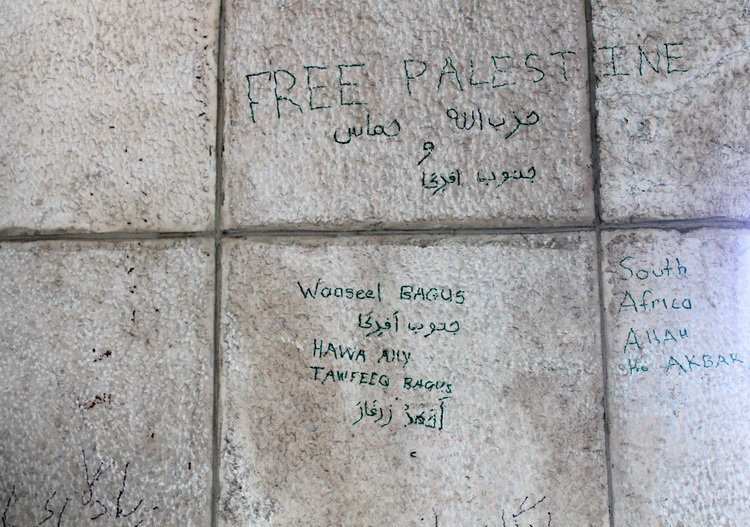 FREE PALESTINE
حزب الله حماس
و
جنوب افرقيا
Waaseel BAGUS
جنوب أفرقيا
HAWA Ally
TAWFEEQ BAGUS
South
Africa
Allah
Ho AKBAR
يادگاری